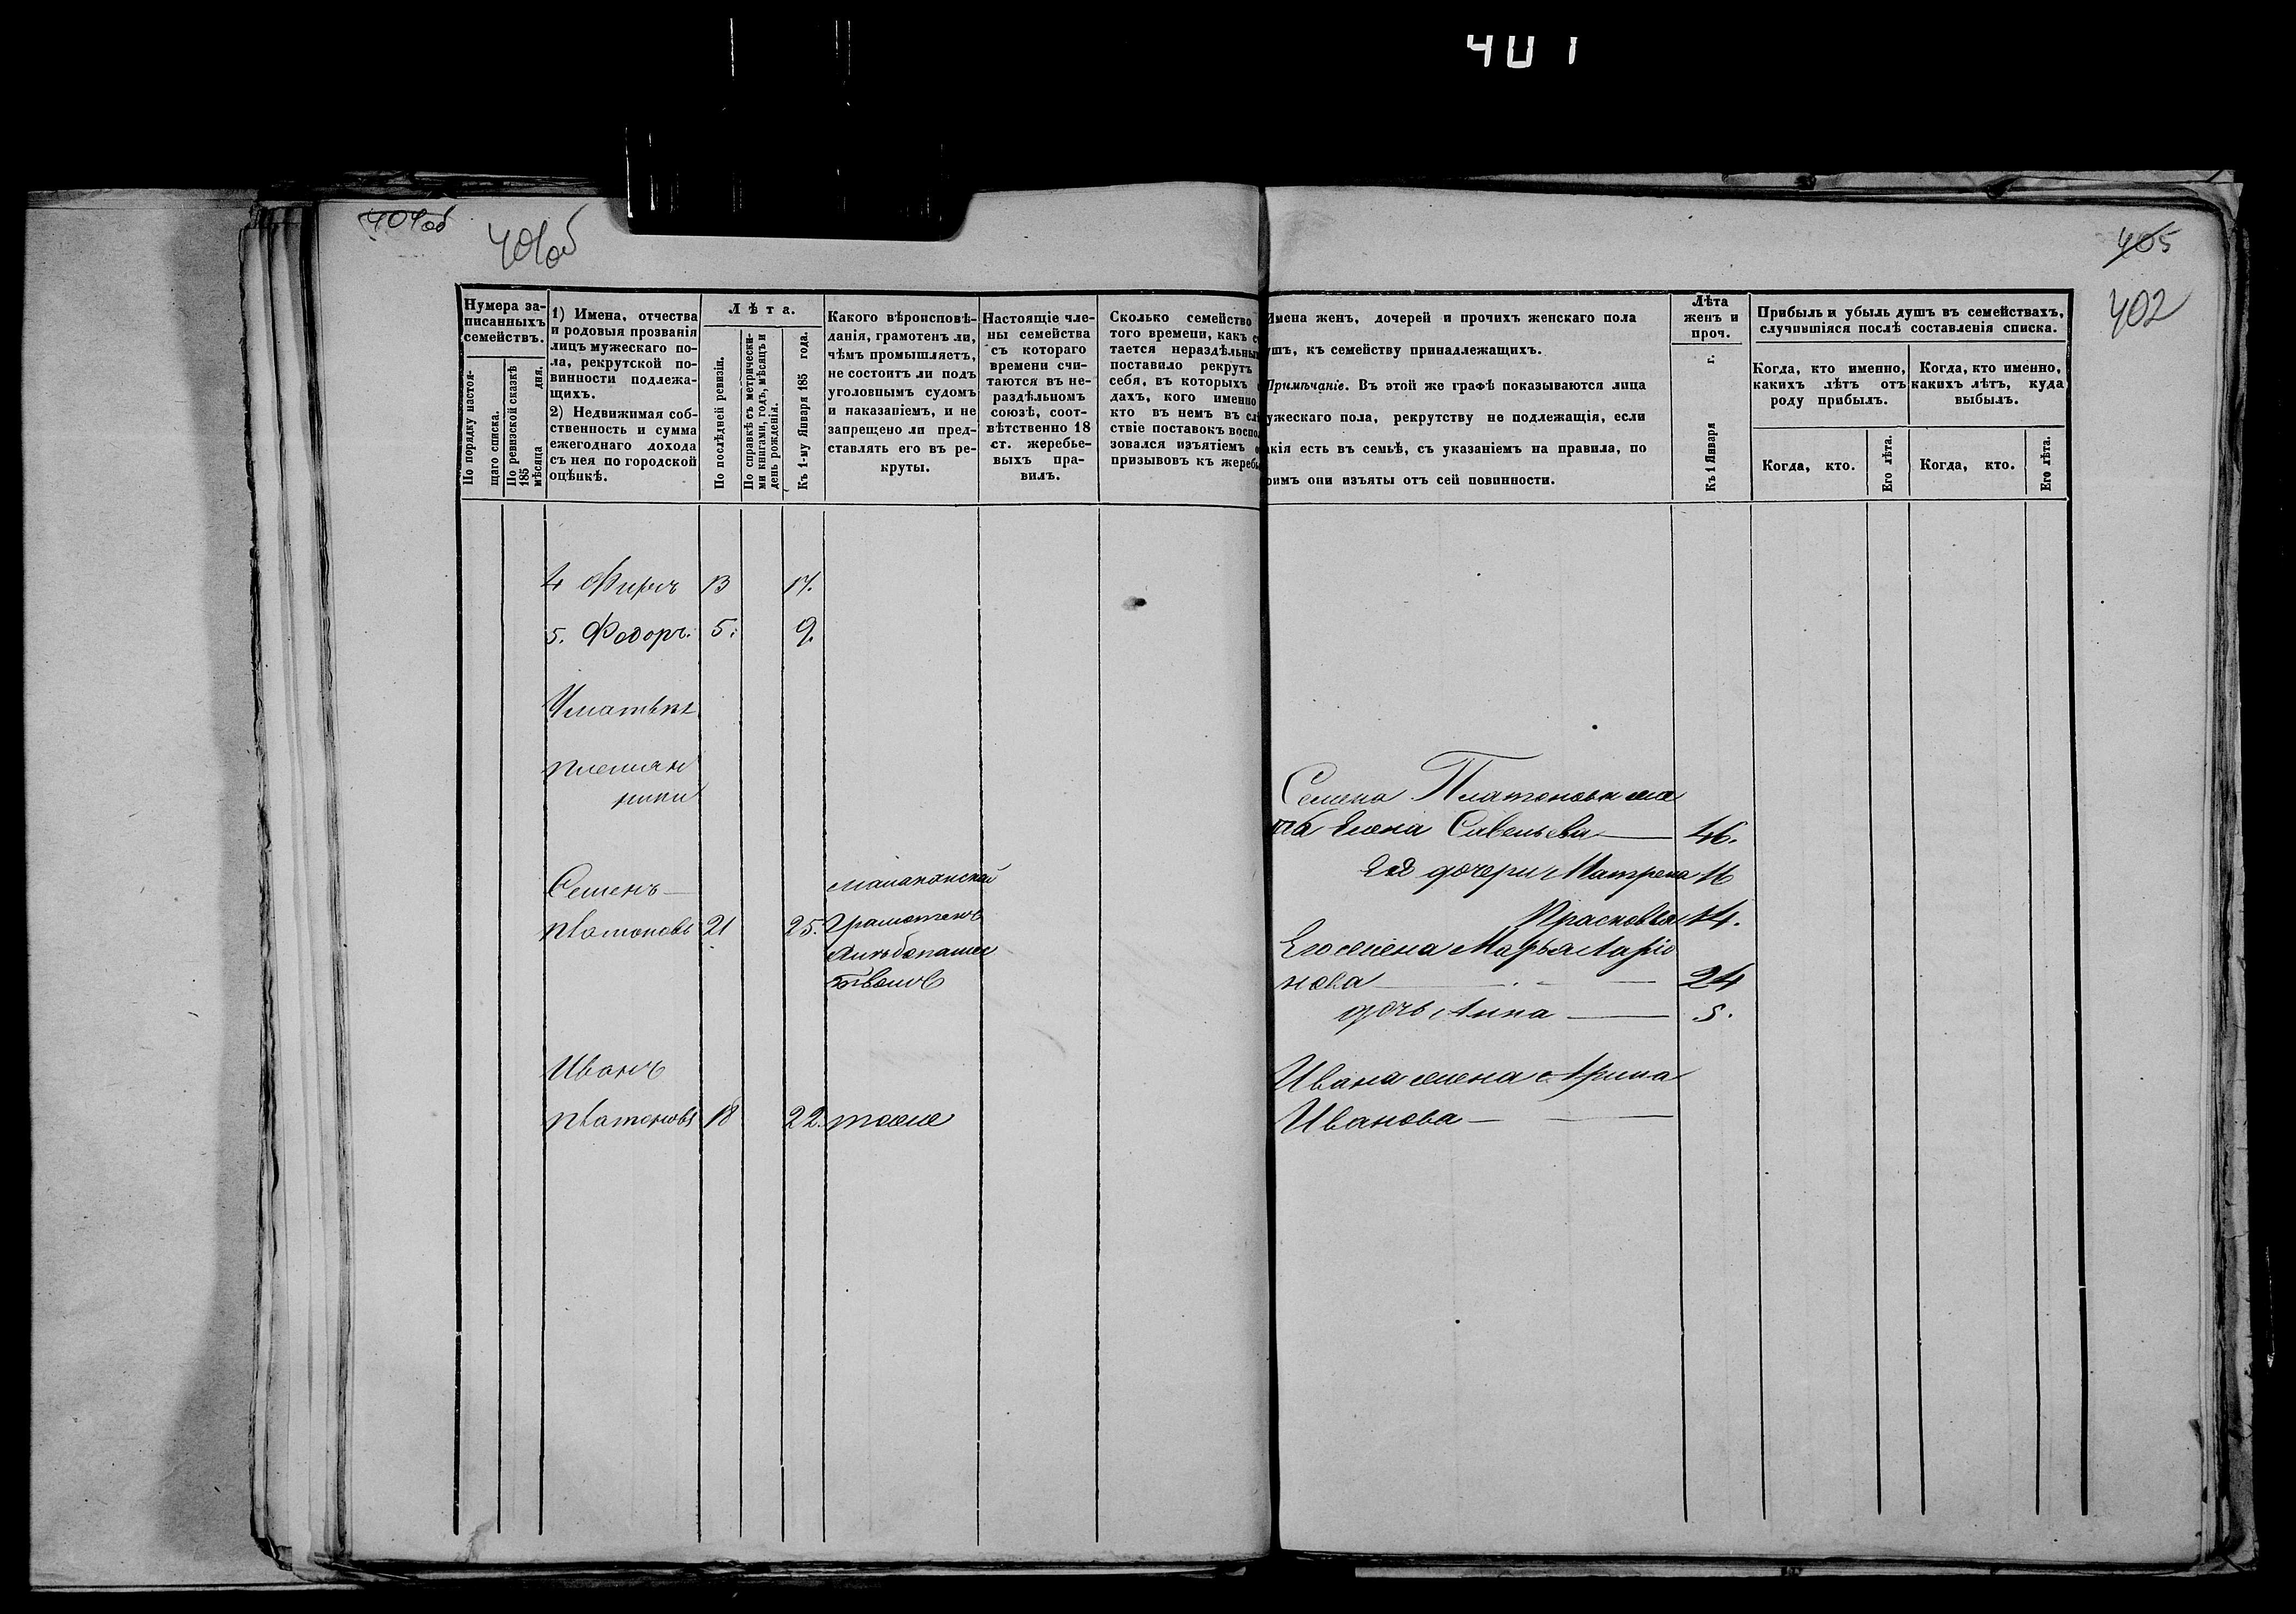 401
404об
401об
405
402
Нумера за-
писанныхъ
семействъ.
По порядку настоя-
щаго списка.
По ревизской сказкѣ
185 дня.
мѣсяца
1) Имена, отчества
и родовыя прозванія
лицъ мужескаго по-
ла, рекрутской по-
винности подлежа-
щихъ.
2) Недвижимая соб-
ственность и сумма
ежегоднаго дохода
съ нея по городской
оцѣнкѣ.
Лѣта.
По послѣдней ревизіи.
По справкѣ съ метрически-
ми книгами, годъ, мѣсяцъ и
день рожденія.
Къ 1-му Января 185 года.
Какого вѣроисповѣ-
данія, грамотенъ ли,
чѣмъ промышляетъ,
не состоитъ ли подъ
уголовнымъ судомъ
и наказаніемъ, и не
запрещено ли пред-
ставлять его въ ре-
круты.
Настоящіе чле-
ны семейства
съ котораго
времени счи-
таются въ не-
раздѣльномъ
союзѣ, соот-
вѣтственно 18
ст. жеребье-
выхъ пра-
вилъ.
Сколько семейство
того времени, какъ с
тается нераздѣльны
поставило рекрутъ
себя, въ которыхъ
дахъ, кого именно
кто въ немъ въ слѣ
ствіе поставокъ воспол
зовался изъятіемъ о
призывовъ къ жеребь
Имена женъ, дочерей и прочихъ женскаго пола
ушъ, къ семейству принадлежащихъ.
Примѣчаніе. Въ этой же графѣ показываются лица
ужескаго пола, рекрутству не подлежащія, если
акія есть въ семьѣ, съ указаніемъ на правила, по
оимъ они изъяты отъ сей повинности.
Лѣта
женъ и
проч.
Къ 1 Января г.
Прибыль и убыль душъ въ семействахъ,
случившіяся послѣ составленія списка.
Когда, кто именно,
какихъ лѣтъ отъ
роду прибылъ.
Когда, кто именно,
какихъ лѣтъ, куда
выбылъ.
Когда, кто.
Его лѣта.
Когда, кто.
Его лѣта.
4 Фирсъ 13 17.
5. Федоръ. 5. 9.
племян
ники
Семена Платонова ма
ть Елена Савельева 46.
Ея дочери Матрена 16
Прасковья 14.
Семенъ
Платоновъ 21 25.
малаканской
Грамотенъ
хлѣбопашес
твомъ
Его жена Марья Ларіо
нова 24
дочь Анна 5.
Иванъ
Платоновъ 18 22. тоже
Ивана жена Арина
Иванова